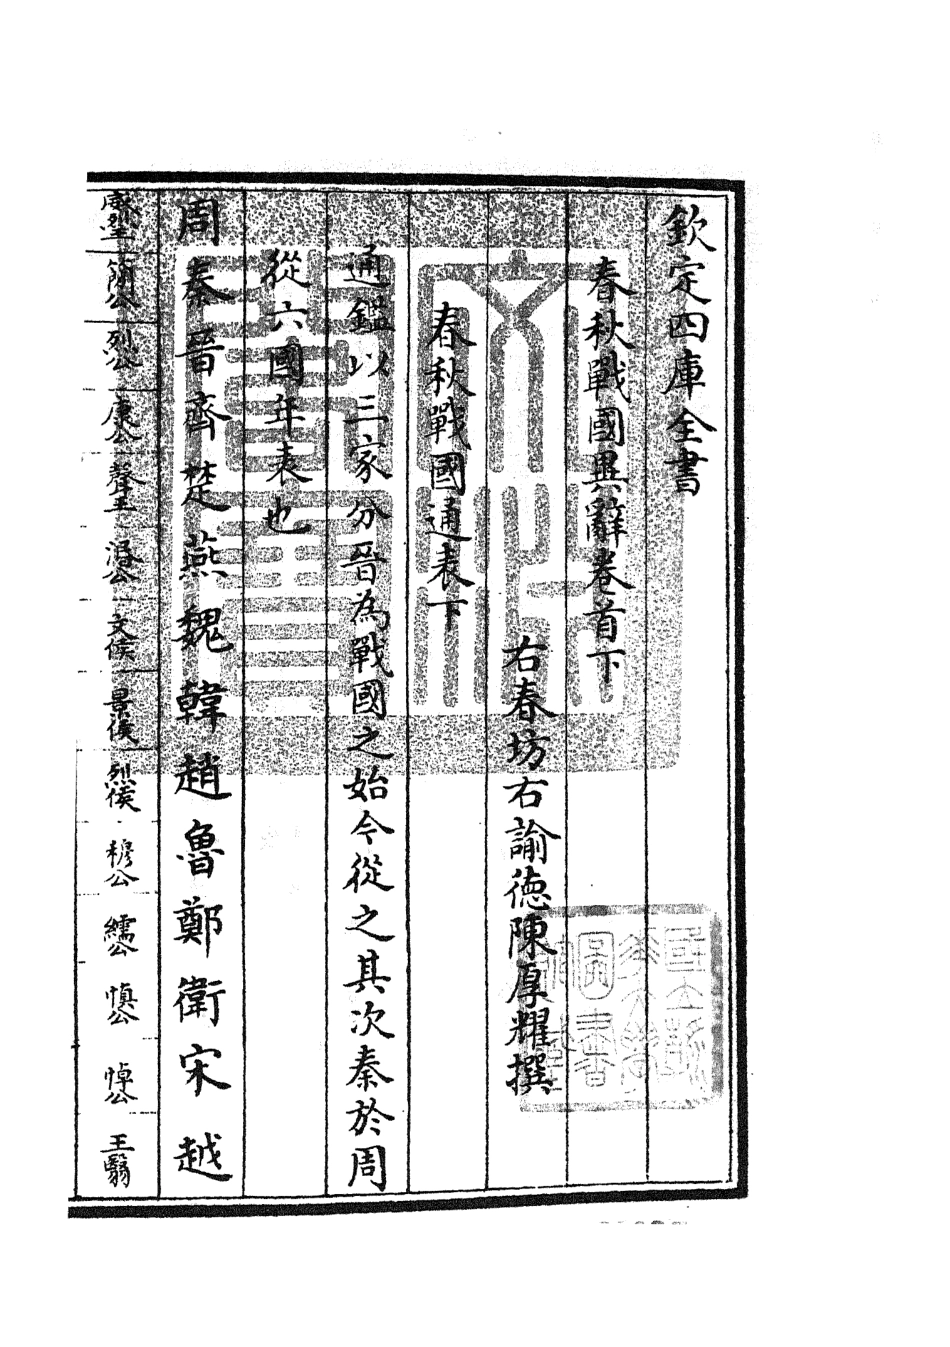 欽定四庫全書
春秋戰國異辭卷首下
右春坊右諭德陳厚耀撰
春秋戰國通表下
通鑑以三家分晉為戰國之始今從之其次秦於周
從六國年表也
周秦晉齊楚燕魏韓趙魯鄭衛宋越
威烈王 簡公 烈公 康公 聲王 湣公 文侯 景侯 烈侯 穆公 繻公 慎公 悼公 王翳